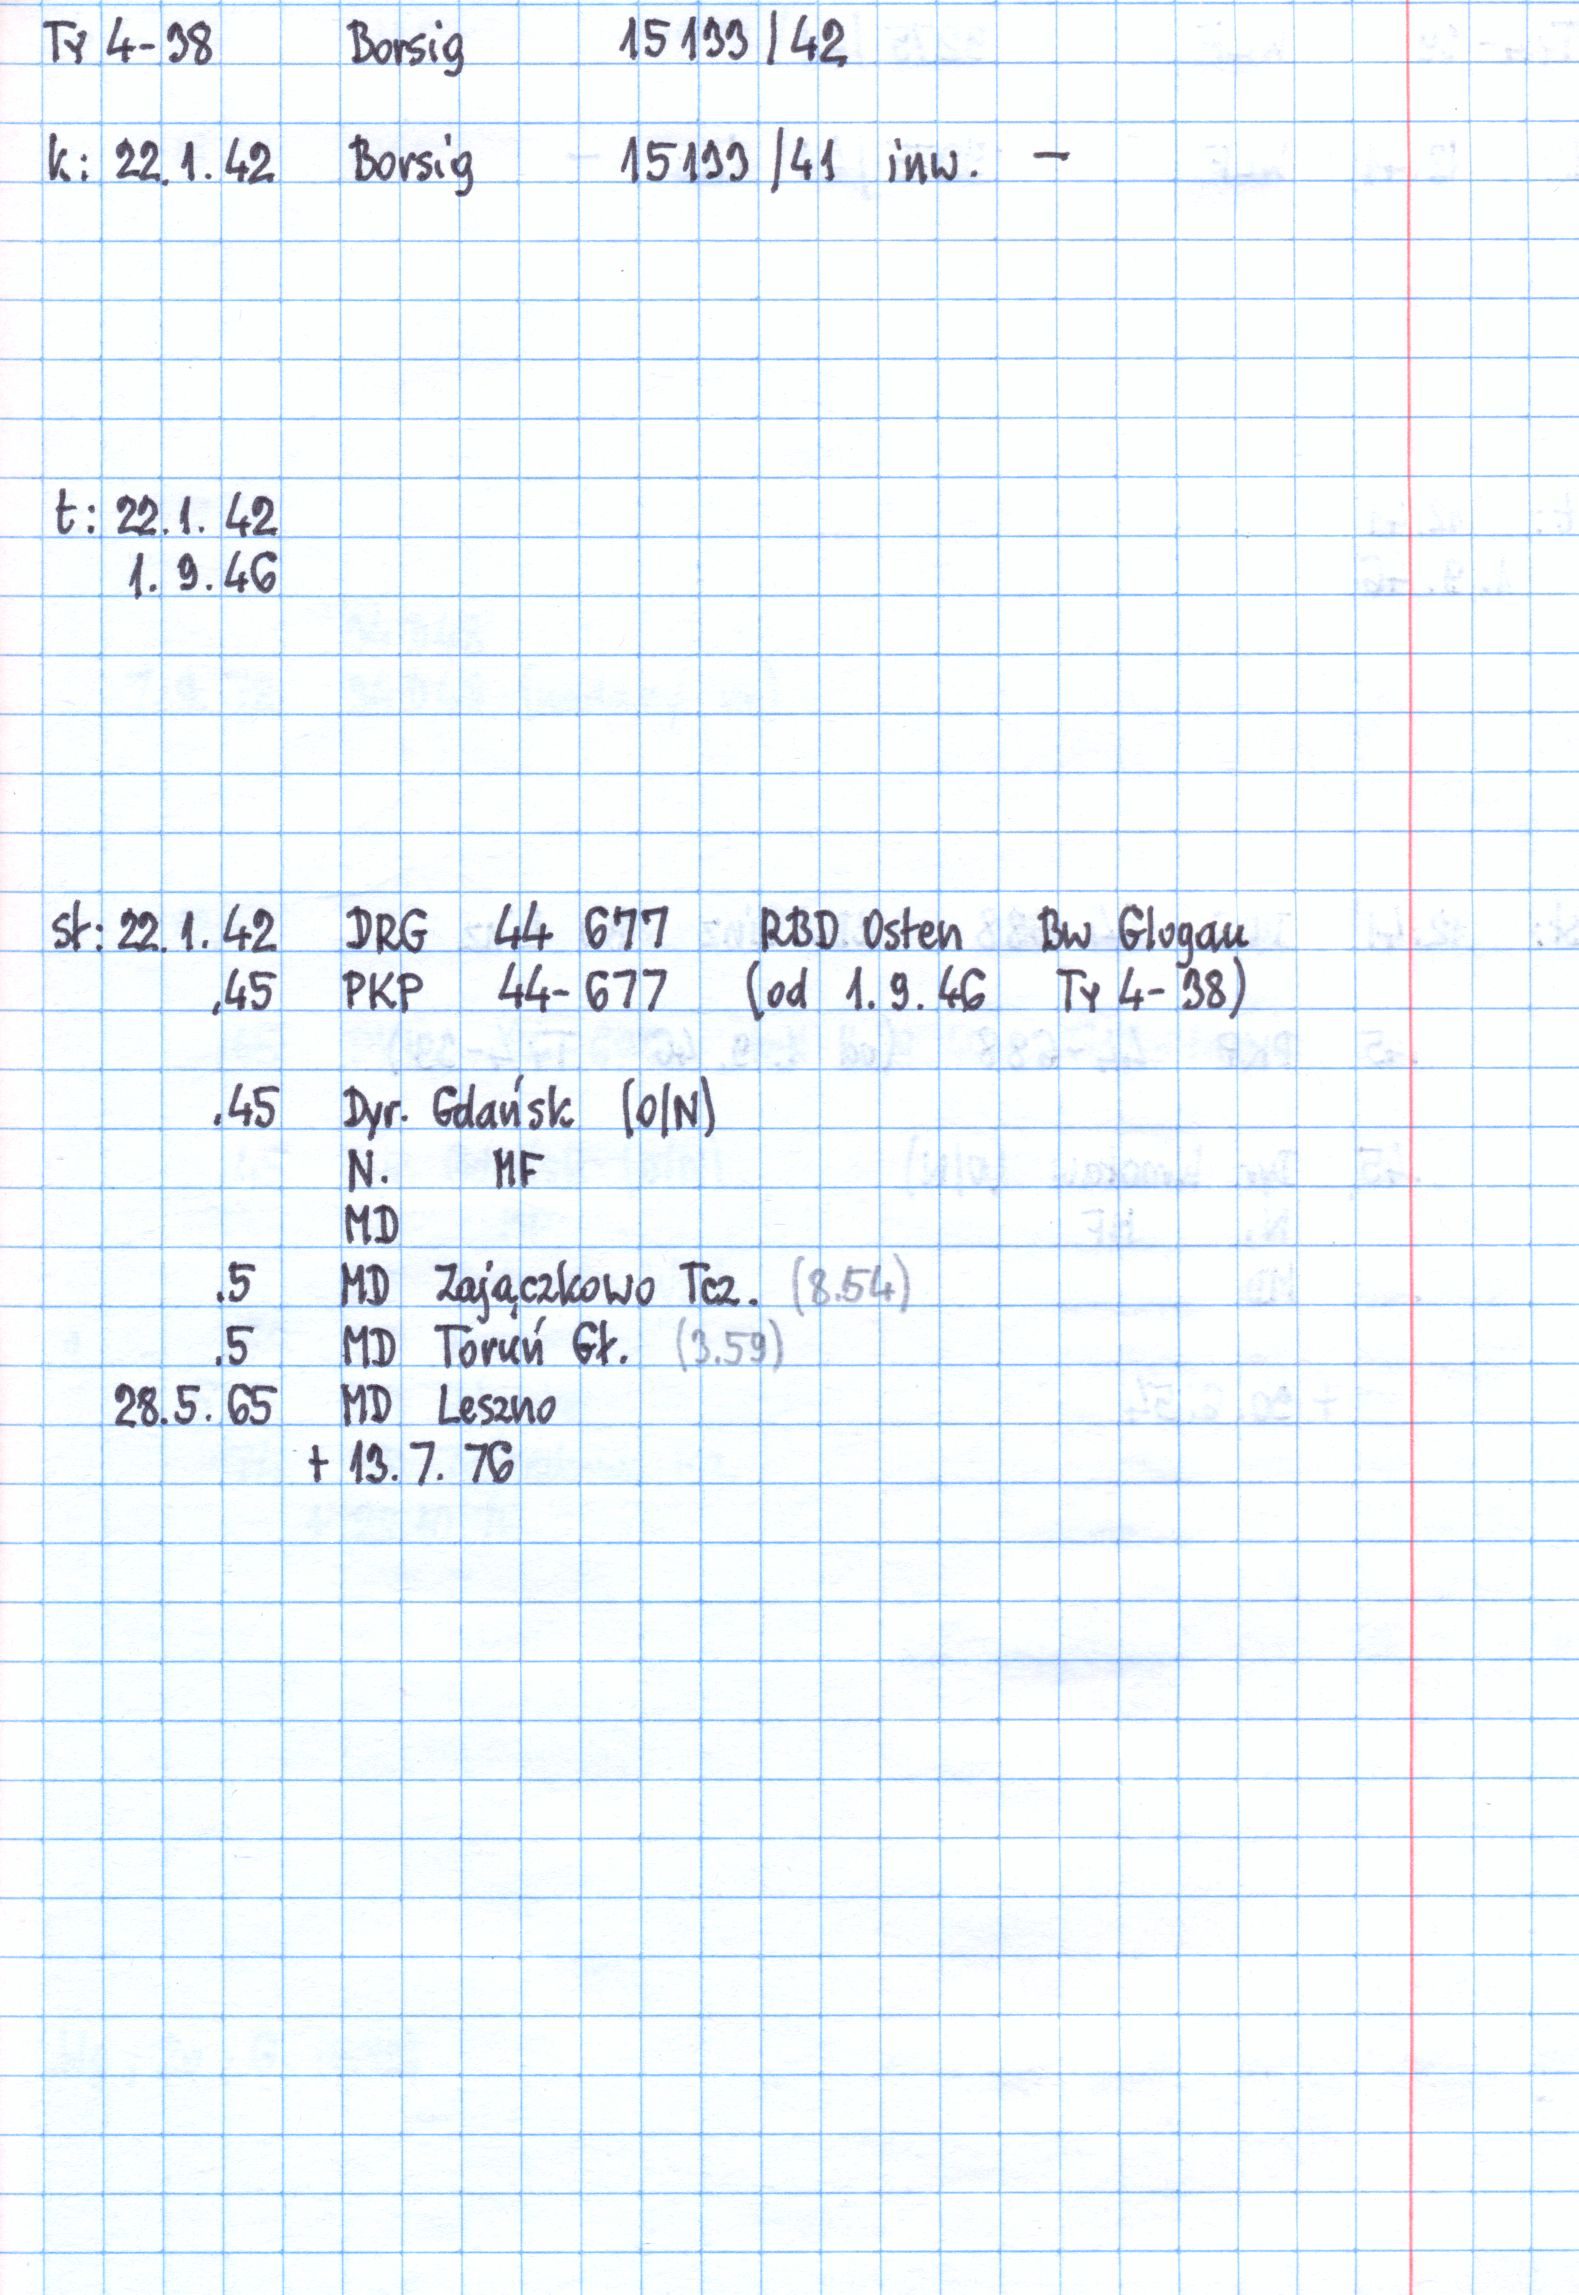 Ty 4-38 Borsig 15133/42
k: 22.1.42 Borsig 15133/41 inw. –
t: 22.1.42
1.9.46
st: 22.1.42 DRG 44 677 RBD Osten Bw Glogau
.45 PKP 44-677 (od 1.9.46 Ty 4-38)
.45 Dyr. Gdańsk (O/N)
N. MF
MD
.5 MD Zajączkowo Tcz. (8.54)
.5 MD Toruń Gł. (3.59)
28.5.65 MD Leszno
+ 13.7.76